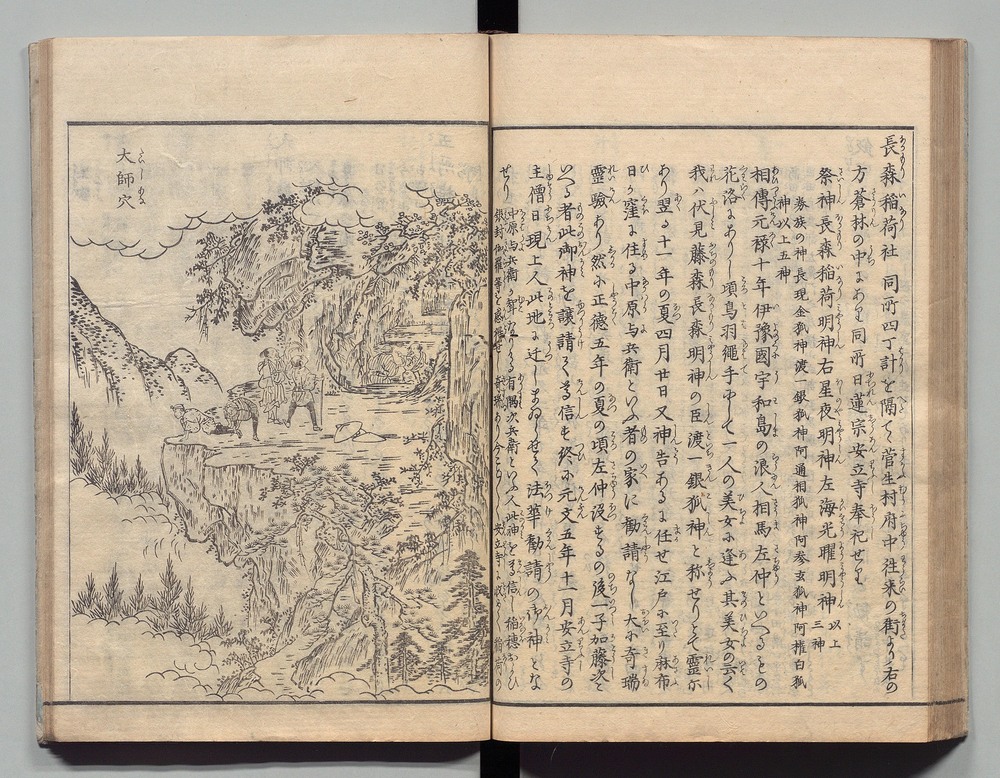 長森稲荷社 同所四丁計を隔て菅生村府中往来の街より右の
方蒼林の中にあり同所日蓮宗安立寺奉祀せり
祭神長森稲荷明神右星夜明神左海光曜明神以上三神
眷族の神長現金狐神渡一銀狐神阿通相狐神阿参玄狐神阿権白狐
神以上五神
相傳元禄十年伊豫國宇和島の浪人相馬左仲といへるもの
花洛にありし頃鳥羽繩手にして一人の美女に逢ふ其美女の云く
我ハ伏見藤森長森明神の臣渡一銀狐神と称せりとて霊示
あり翌る十一年の夏四月廿日又神告あるに任せ江戸に至り麻布
日か窪に住る中原与兵衛といふ者の家に勧請なし大に奇瑞
霊驗あり然に正徳五年の夏の頃左仲没するの後一子加藤次と
いへる者此御神を譲請る信も終に元文五年十一月安立寺の
主僧日現上人此地に迁しまゐらせて法華勧請の御神とな
せり 中原与兵衛 有隅次兵衛といふ人此神を信し稲穂
大師穴